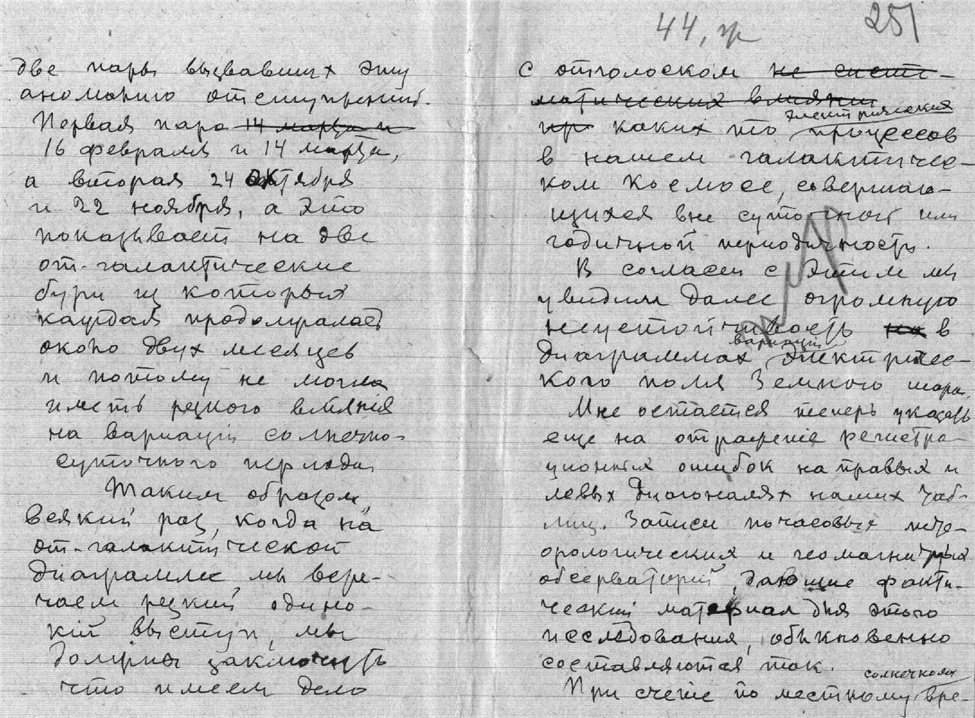 44,
251
две пары вызвавших эту
аномалию отступлений.
Первая пара 14 марта и
16 февраля и 14 марта,
а вторая 24 октября
и 22 ноября, а это
показывает на две
от-галактические
бури из которых
каждая продолжалась
около двух месяцев
и потому не могла
иметь резкого влияния
на вариаций солнечно-
суточного периода.
Таким образом
всякий раз, когда на
от-галактической
диаграмме мы встре-
чаем резкий одино-
кий выступ, мы
должны заключить
что имеем дело
с отголоском не систе-
матических влияний
электрических
каких то процессов
в нашем галактичес-
ком Космосе, совершаю-
щихся вне суточной или
годичной периодичность.
В согласии с этим мы
увидим далее огромную
неустойчивость на в
вариаций
диаграммах электричес-
кого поля Земного шара.
Мне остается теперь указать
еще на отражение регистра-
ционных ошибок на правых и
левых диагоналях наших таб-
лиц. Записи почасовых мете-
орологических и геомагнитных
обсерваторий, дающие факти-
ческий материал для этого
исследования, обыкновенно
составляются так.
солнечному
При счете по местному вре-